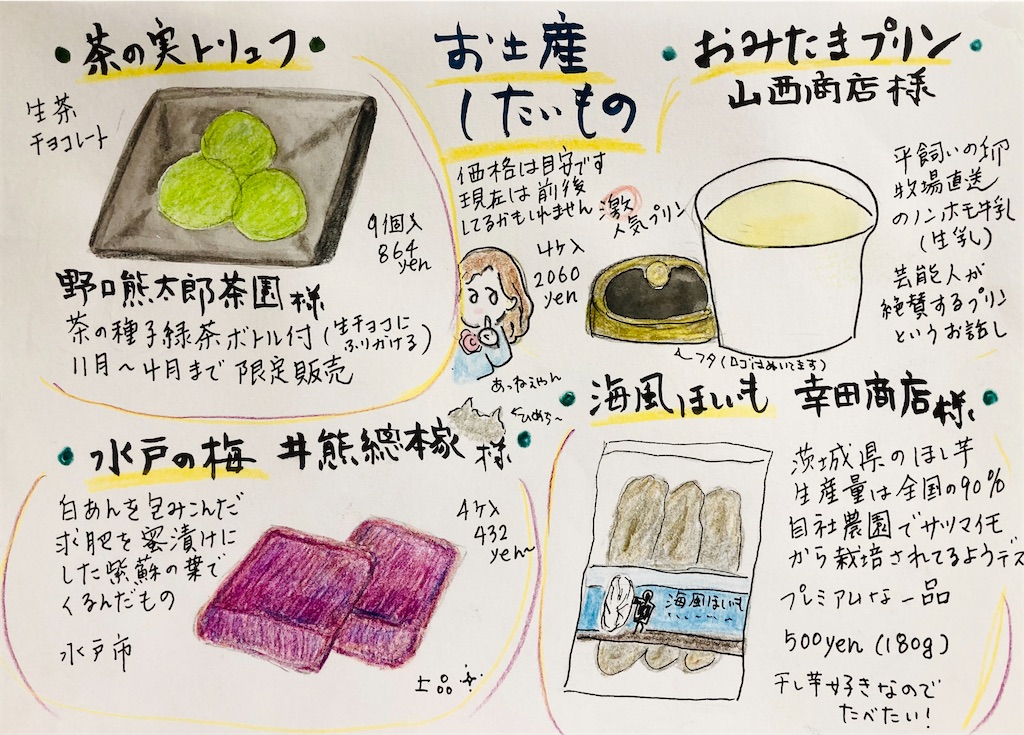 お土産
したいもの
価格は目安です
現在は前後
してるかもしれません
茶の実トリュフ
生茶
チョコレート
9個入
864
yen
野口熊太郎茶園様
茶の種子緑茶ボトル付(生チョコに
ふりかける)
11月～4月まで限定販売
おみたまプリン
山西商店様
激
人気プリン
4ケ入
2060
yen
平飼いの卵
牧場直送
のノンホモ牛乳
(生乳)
芸能人が
絶賛するプリン
というお話し
←フタ(ロゴはぬいてます)
あっねえやん
水戸の梅 井熊總本家様
白あんを包みこんだ
求肥を蜜漬けに
した紫蘇の葉で
くるんだもの
水戸市
4ケ入
432
yen～
上品
海風ほしいも 幸田商店様
海風ほしいも
茨城県のほし芋
生産量は全国の90%
自社農園でサツマイモ
から栽培されてるようデス
プレミアムな一品
500yen(180g)
干し芋好きなので
たべたい!